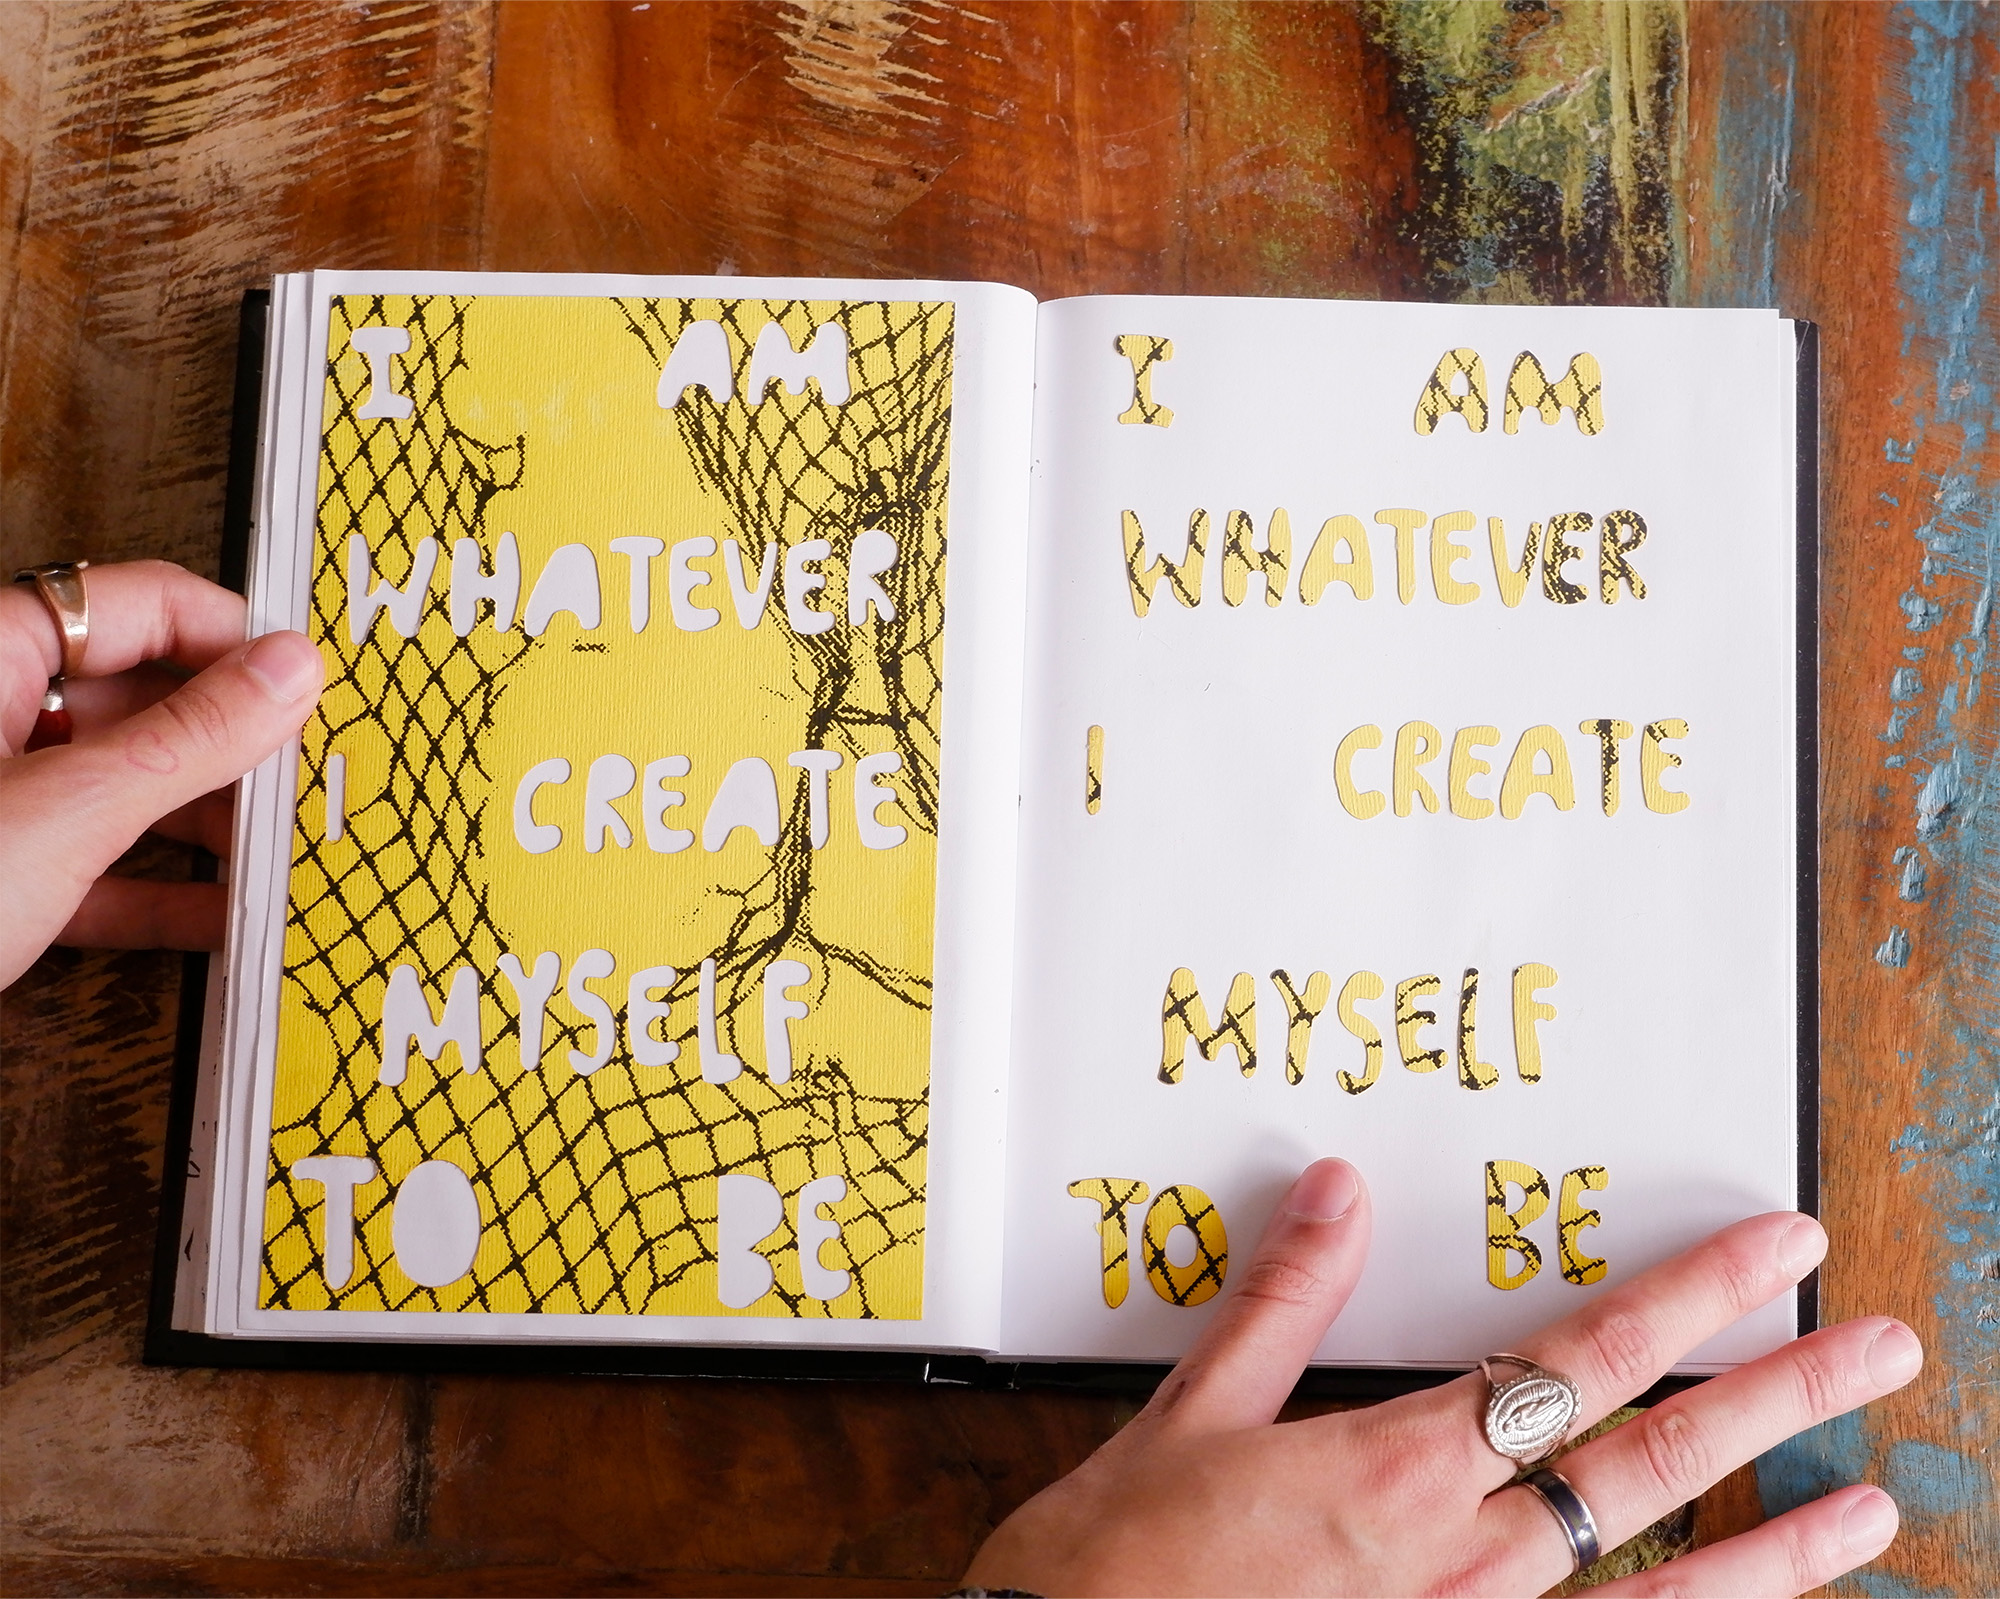 I AM
WHATEVER
I CREATE
MYSELF
TO BE
I AM
WHATEVER
I CREATE
MYSELF
TO BE